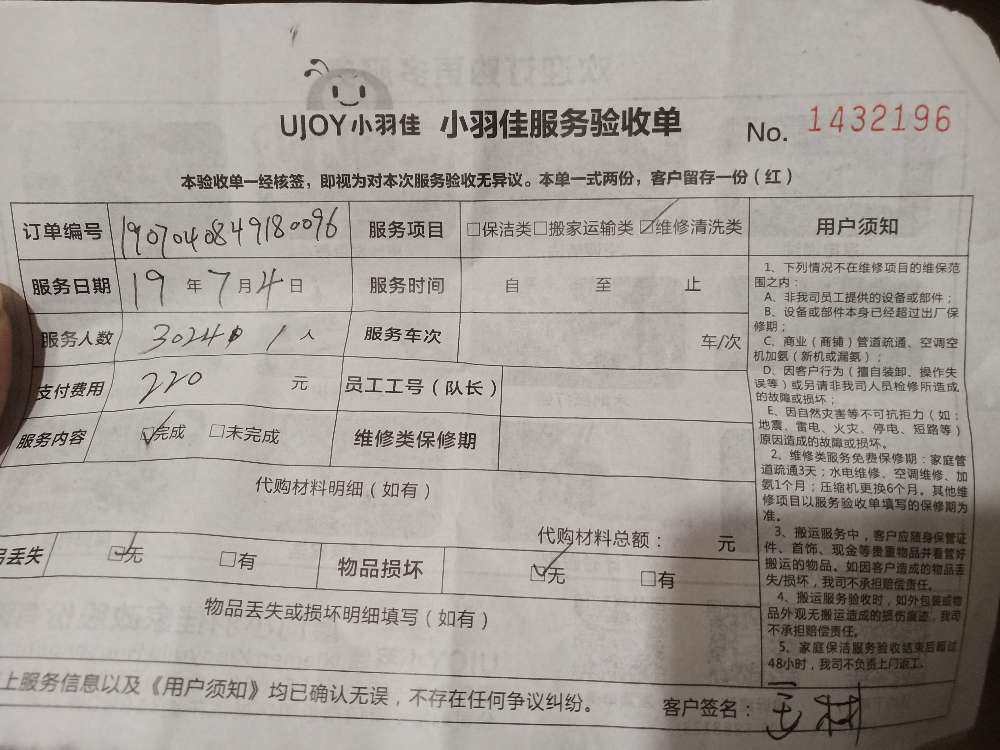 UJOY小羽佳 小羽佳服务验收单 No. 1432196
本验收单一经核签，即视为对本次服务验收无异议。本单一式两份，客户留存一份（红）
订单编号 1907040849180096 服务项目 □保洁类□搬家运输类☑维修清洗类
服务日期 19 年 7 月 4 日 服务时间 自 至 止
服务人数 3024 1 人 服务车次 车/次
支付费用 220 元 员工工号（队长）
服务内容 ☑完成 □未完成 维修类保修期
代购材料明细（如有）
代购材料总额： 元
丢失 ☑无 □有 物品损坏 ☑无 □有
物品丢失或损坏明细填写（如有）
上服务信息以及《用户须知》均已确认无误，不存在任何争议纠纷。 客户签名：
用户须知
1、下列情况不在维修项目的维保范
围之内：
A、非我司员工提供的设备或部件；
B、设备或部件本身已经超过出厂保
修期；
C、商业（商铺）管道疏通、空调空
机加氨（新机或漏氨）；
D、因客户行为（擅自装卸、操作失
误等）或另请非我司人员检修所造成
的故障或损坏；
E、因自然灾害等不可抗拒力（如：
地震、雷电、火灾、停电、短路等）
原因造成的故障或损坏。
2、维修类服务免费保修期：家庭管
道疏通3天；水电维修、空调维修、加
氨1个月；压缩机更换6个月。其他维
修项目以服务验收单填写的保修期为
准。
3、搬运服务中，客户应随身保管证
件、首饰、现金等贵重物品并看管好
搬运的物品。如因客户造成的物品丢
失/损坏，我司不承担赔偿责任。
4、搬运服务验收时，如外包装或物
品外观无搬运造成的损伤痕迹，我司
不承担赔偿责任。
5、家庭保洁服务验收结束后超过
48小时，我司不负责上门返工。